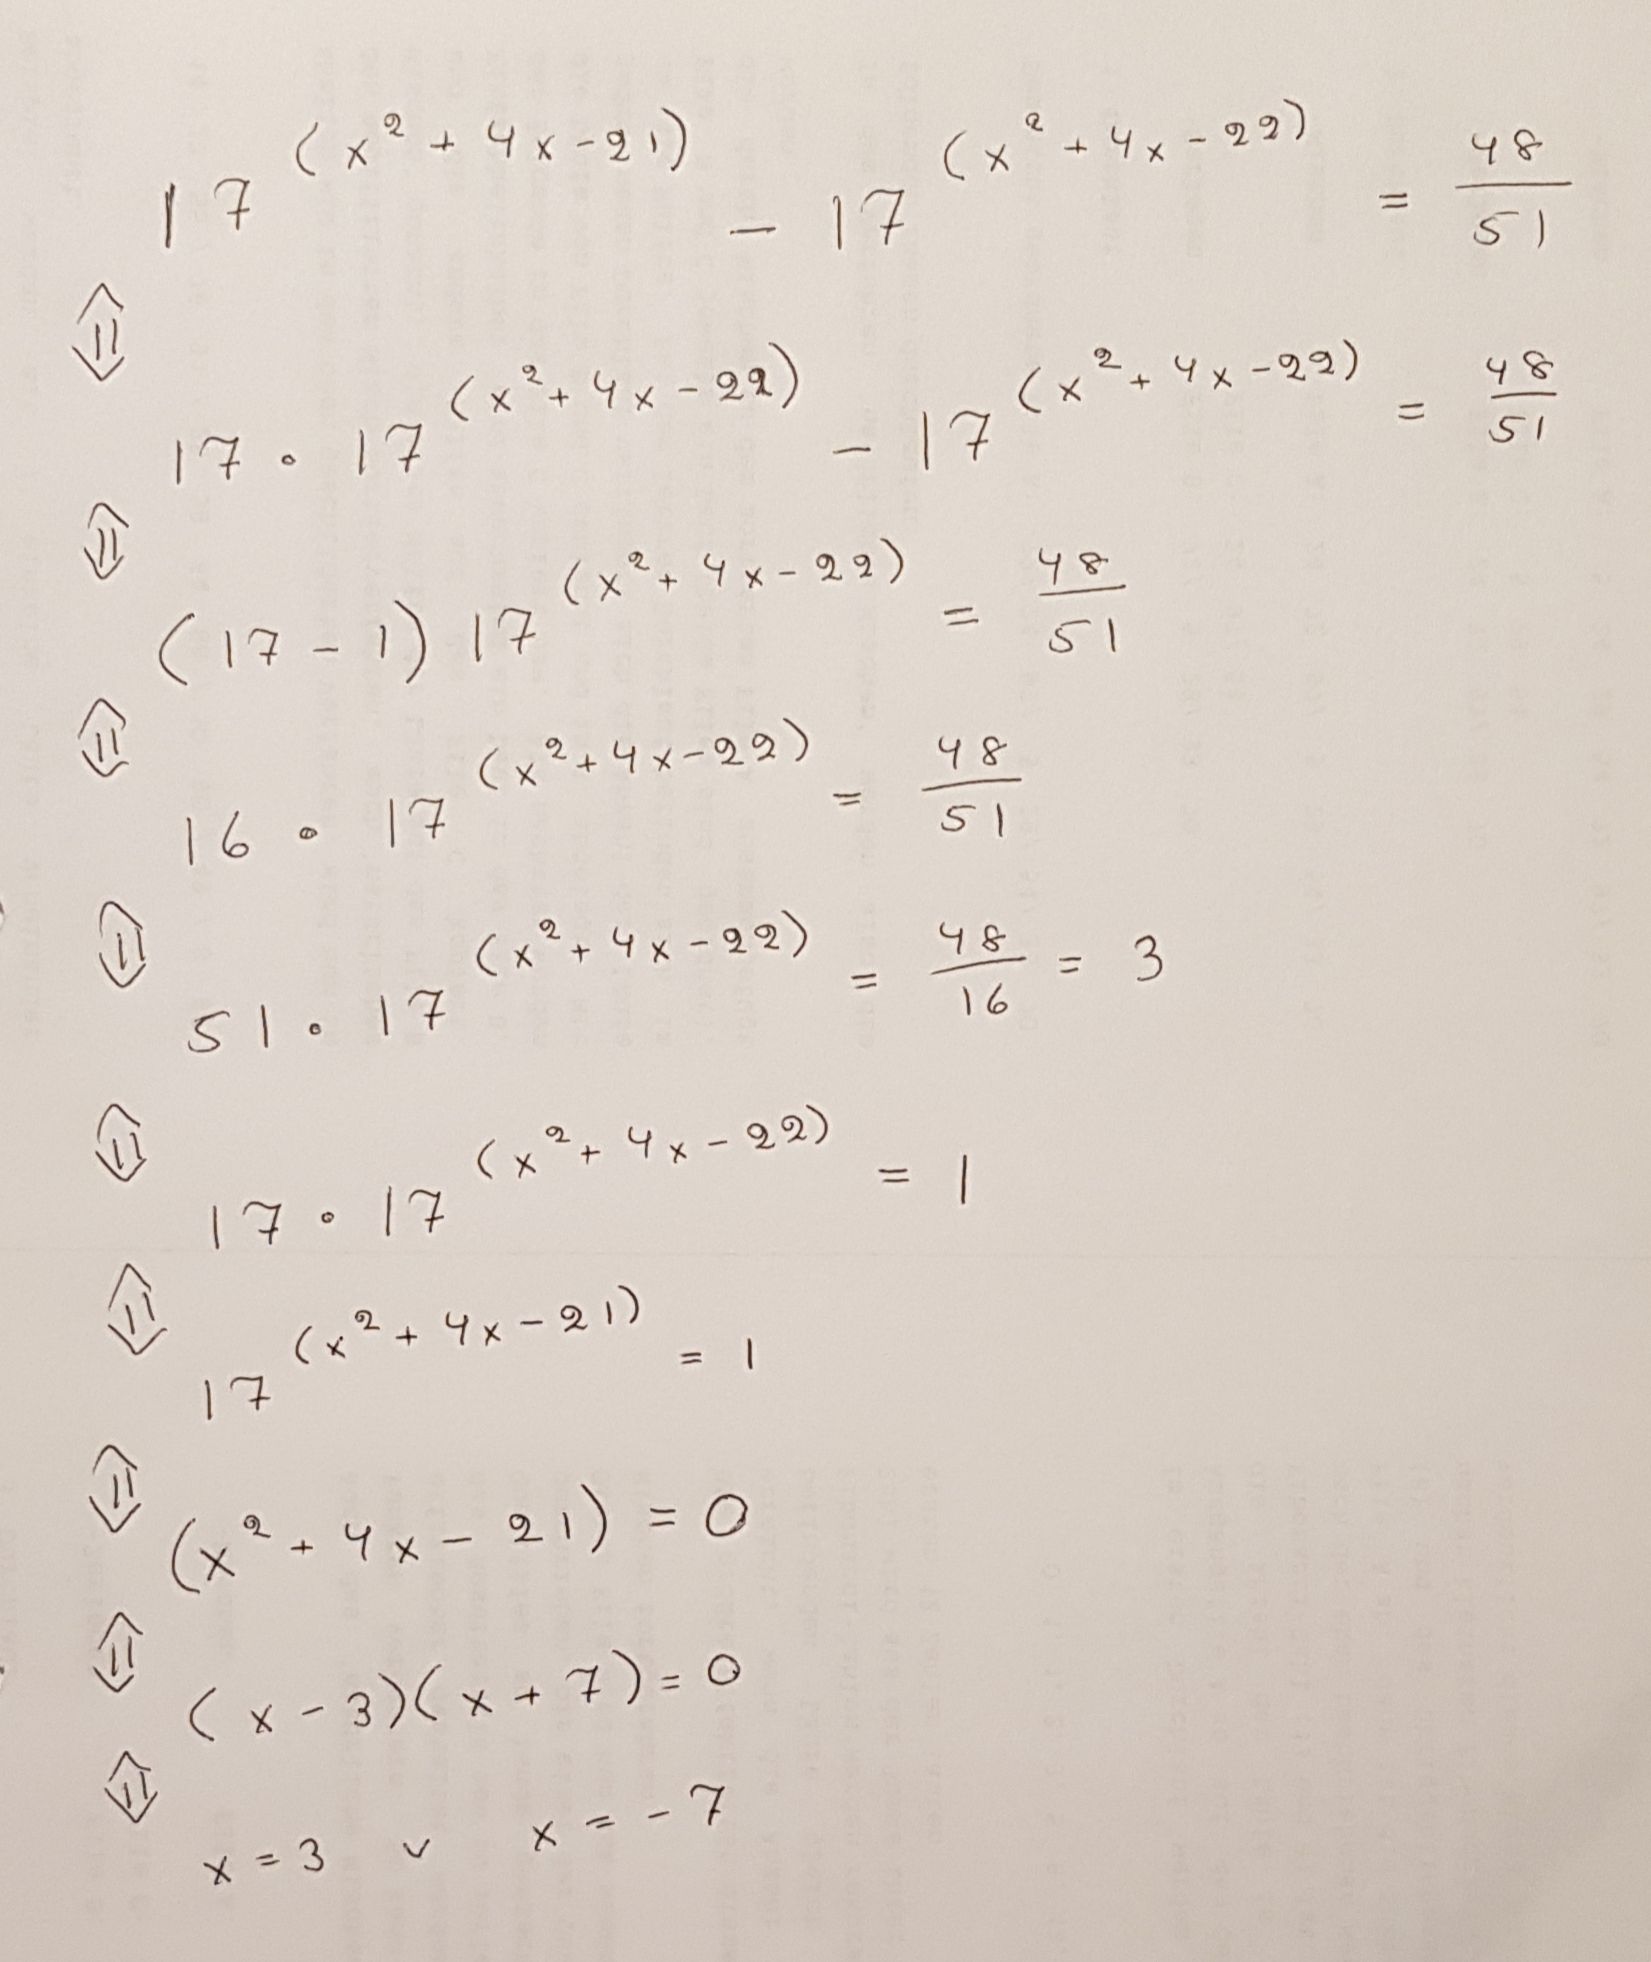 17^(x²+4x-21) - 17^(x²+4x-22) = 48/51
⇕ 17·17^(x²+4x-22) - 17^(x²+4x-22) = 48/51
⇕ (17-1)17^(x²+4x-22) = 48/51
⇕ 16·17^(x²+4x-22) = 48/51
⇕ 51·17^(x²+4x-22) = 48/16 = 3
⇕ 17·17^(x²+4x-22) = 1
⇕ 17^(x²+4x-21) = 1
⇕ (x²+4x-21) = 0
⇕ (x-3)(x+7) = 0
⇕ x = 3 ∨ x = -7